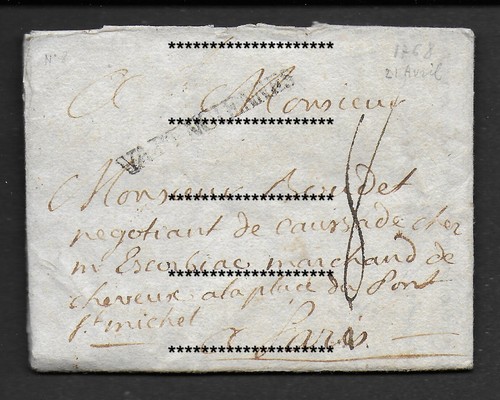 N° 8
1768
21 Avril
********************
A Monsieur
********************
Monsieur Boudet
********************
negotiant de Caussade cher
m Escorbiac marchand de
********************
cheveux a la place du Pont
St michel
a Paris
********************
8